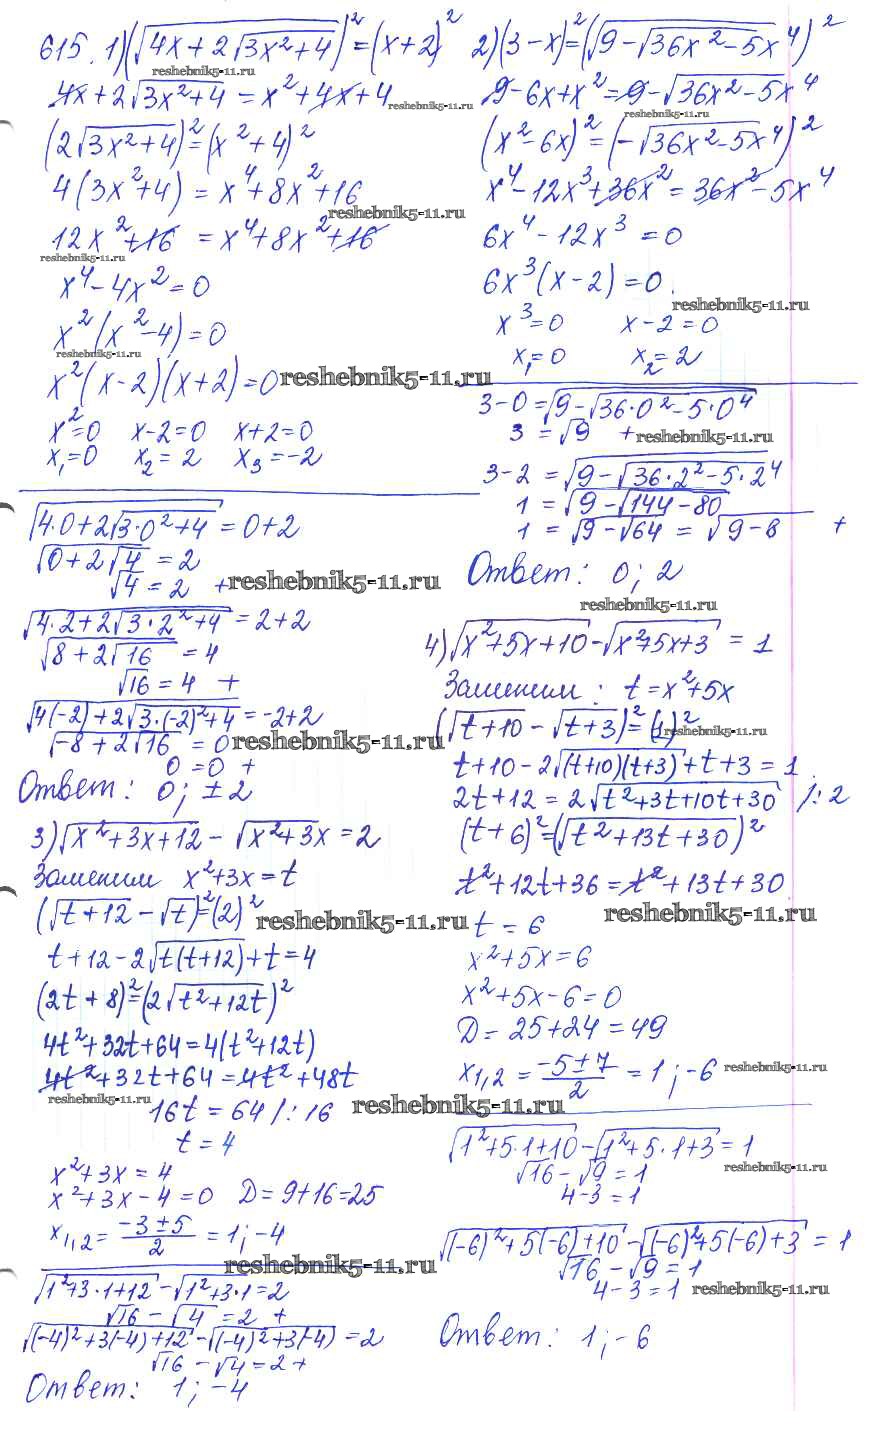 615. 1) (√(4x+2√(3x²+4)))² = (x+2)²
reshebnik5-11.ru
4x+2√(3x²+4) = x²+4x+4
reshebnik5-11.ru
(2√(3x²+4))² = (x²+4)²
4(3x²+4) = x⁴+8x²+16
reshebnik5-11.ru
12x²+16 = x⁴+8x²+16
reshebnik5-11.ru
x⁴-4x² = 0
x²(x²-4) = 0
reshebnik5-11.ru
x²(x-2)(x+2) = 0
reshebnik5-11.ru
x²=0 x-2=0 x+2=0
x₁=0 x₂=2 x₃=-2
√(4·0+2√(3·0²+4)) = 0+2
√(0+2√4) = 2
√4 = 2 +
reshebnik5-11.ru
√(4·2+2√(3·2²+4)) = 2+2
√(8+2√16) = 4
√16 = 4 +
√(4(-2)+2√(3·(-2)²+4)) = -2+2
√(-8+2√16) = 0
reshebnik5-11.ru
0 = 0 +
Ответ: 0; ±2
3) √(x²+3x+12) - √(x²+3x) = 2
Заменим x²+3x=t
(√(t+12) - √t)² = (2)²
reshebnik5-11.ru
t+12-2√(t(t+12))+t=4
(2t+8)² = (2√(t²+12t))²
4t²+32t+64=4(t²+12t)
4t²+32t+64=4t²+48t
reshebnik5-11.ru
16t = 64 /:16
reshebnik5-11.ru
t = 4
x²+3x = 4
x²+3x-4=0 D=9+16=25
x₁,₂ = (-3±5)/2 = 1; -4
reshebnik5-11.ru
√(1²+3·1+12) - √(1²+3·1) = 2
√16 - √4 = 2 +
√((-4)²+3(-4)+12) - √((-4)²+3(-4)) = 2
√16 - √4 = 2 +
Ответ: 1; -4
2) (3-x)² = (√(9-√(36x²-5x⁴)))²
9-6x+x² = 9-√(36x²-5x⁴)
reshebnik5-11.ru
(x²-6x)² = (-√(36x²-5x⁴))²
x⁴-12x³+36x² = 36x²-5x⁴
6x⁴-12x³ = 0
6x³(x-2) = 0
reshebnik5-11.ru
x³=0 x-2=0
x₁=0 x₂=2
3-0 = √(9-√(36·0²-5·0⁴))
3 = √9 +
reshebnik5-11.ru
3-2 = √(9-√(36·2²-5·2⁴))
1 = √(9-√(144-80))
1 = √(9-√64) = √(9-8) +
Ответ: 0; 2
reshebnik5-11.ru
4) √(x²+5x+10) - √(x²+5x+3) = 1
Заменим: t=x²+5x
(√(t+10) - √(t+3))² = (1)²
reshebnik5-11.ru
t+10-2√((t+10)(t+3))+t+3=1
2t+12 = 2√(t²+3t+10t+30) /:2
(t+6)² = (√(t²+13t+30))²
t²+12t+36=t²+13t+30
reshebnik5-11.ru
t = 6
x²+5x=6
x²+5x-6=0
D = 25+24=49
x₁,₂ = (-5±7)/2 = 1; -6
reshebnik5-11.ru
√(1²+5·1+10) - √(1²+5·1+3) = 1
√16 - √9 = 1
reshebnik5-11.ru
4-3=1
√((-6)²+5(-6)+10) - √((-6)²+5(-6)+3) = 1
√16 - √9 = 1
4-3=1
reshebnik5-11.ru
Ответ: 1; -6